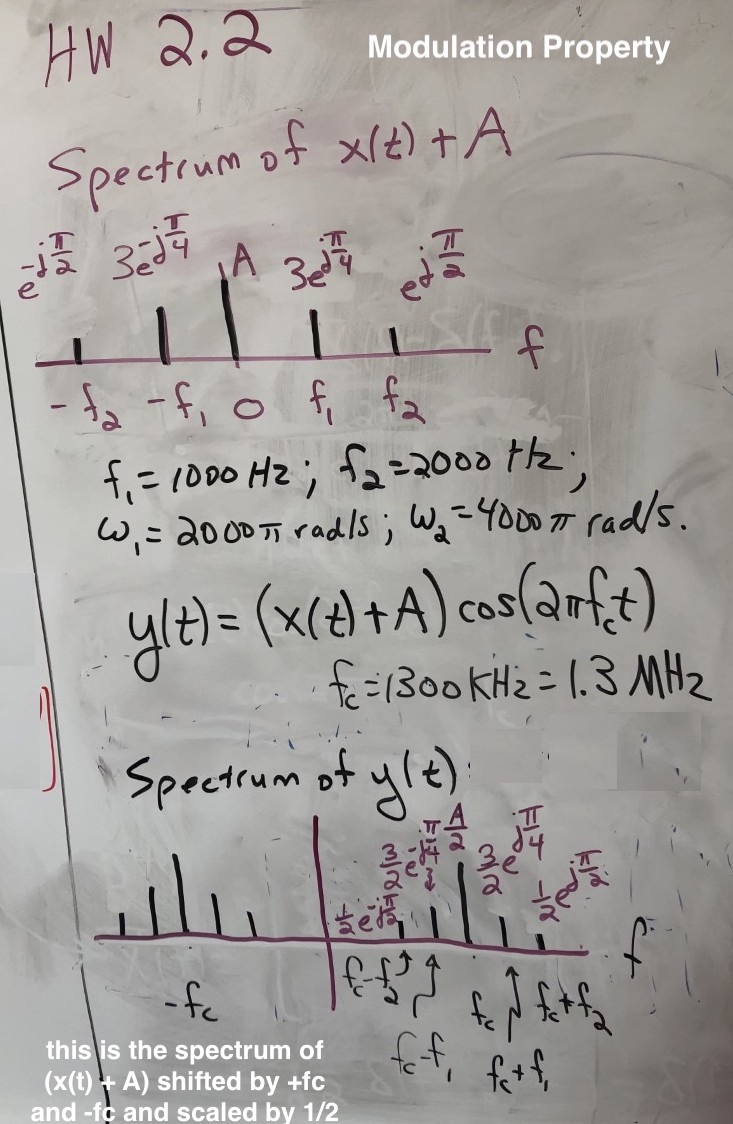 HW 2.2
Modulation Property
Spectrum of x(t) + A
e^{-jπ/2} 3e^{-jπ/4} A 3e^{jπ/4} e^{jπ/2}
-f₂ -f₁ 0 f₁ f₂ f
f₁ = 1000 Hz; f₂ = 2000 Hz;
ω₁ = 2000π rad/s; ω₂ = 4000π rad/s.
y(t) = (x(t) + A) cos(2πf_c t)
f_c = 1300 KHz = 1.3 MHz
Spectrum of y(t):
1/2 e^{-jπ/2} 3/2 e^{-jπ/4} A/2 3/2 e^{jπ/4} 1/2 e^{jπ/2}
f
-f_c f_c-f₂ f_c-f₁ f_c f_c+f₁ f_c+f₂
this is the spectrum of
(x(t) + A) shifted by +fc
and -fc and scaled by 1/2